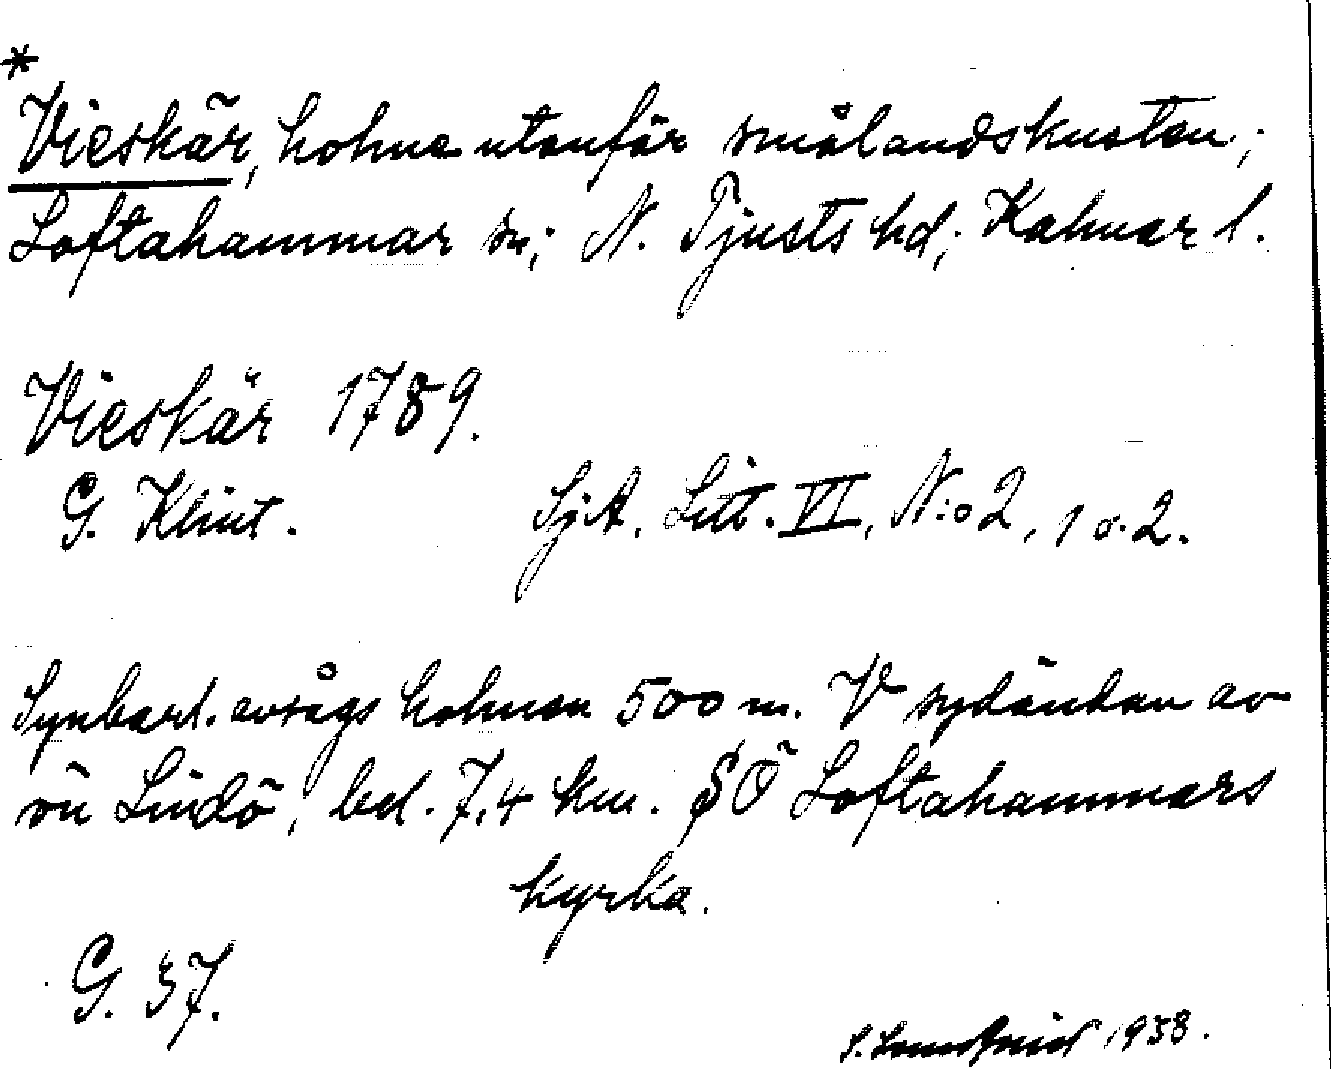 *
Vieskär, holme utanför smålandskusten;
Loftahammar sn; N. Tjusts hd; Kalmar l.
Vieskär 1789.
G. Klint. SjA. Litt. VI, N:o 2, 1 o. 2.
Synbarl. avsågs holmen 500 m. V sydändan av
ön Lindö, bel. 7,4 km. SÖ Loftahammars
kyrka.
G. 37.
S. 1938.